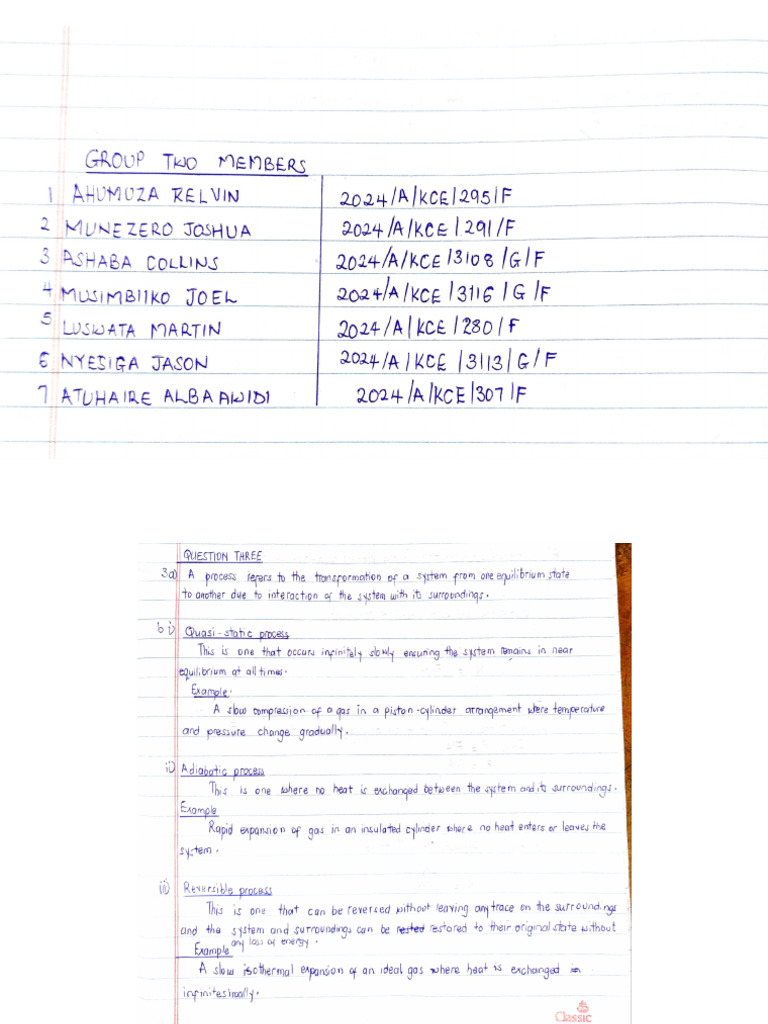 GROUP TWO MEMBERS
1 AHUMUZA KELVIN 2024/A/KCE/295/F
2 MUNEZERO JOSHUA 2024/A/KCE/291/F
3 ASHABA COLLINS 2024/A/KCE/3108/G/F
4 MUSIMBIIKO JOEL 2024/A/KCE/3116/G/F
5 LUSWATA MARTIN 2024/A/KCE/280/F
6 NYESIGA JASON 2024/A/KCE/3113/G/F
7 ATUHAIRE ALBAAWIDI 2024/A/KCE/307/F
QUESTION THREE
3a) A process refers to the transformation of a system from one equilibrium state
to another due to interaction of the system with its surroundings.
b i) Quasi-static process
This is one that occurs infinitely slowly ensuring the system remains in near
equilibrium at all times.
Example.
A slow compression of a gas in a piston-cylinder arrangement where temperature
and pressure change gradually.
ii) Adiabatic process
This is one where no heat is exchanged between the system and its surroundings.
Example
Rapid expansion of gas in an insulated cylinder where no heat enters or leaves the
system.
iii) Reversible process
This is one that can be reversed without leaving any trace on the surroundings
and the system and surroundings can be rested restored to their original state without
any loss of energy.
Example
A slow isothermal expansion of an ideal gas where heat is exchanged in
infinitesimally.
Classic